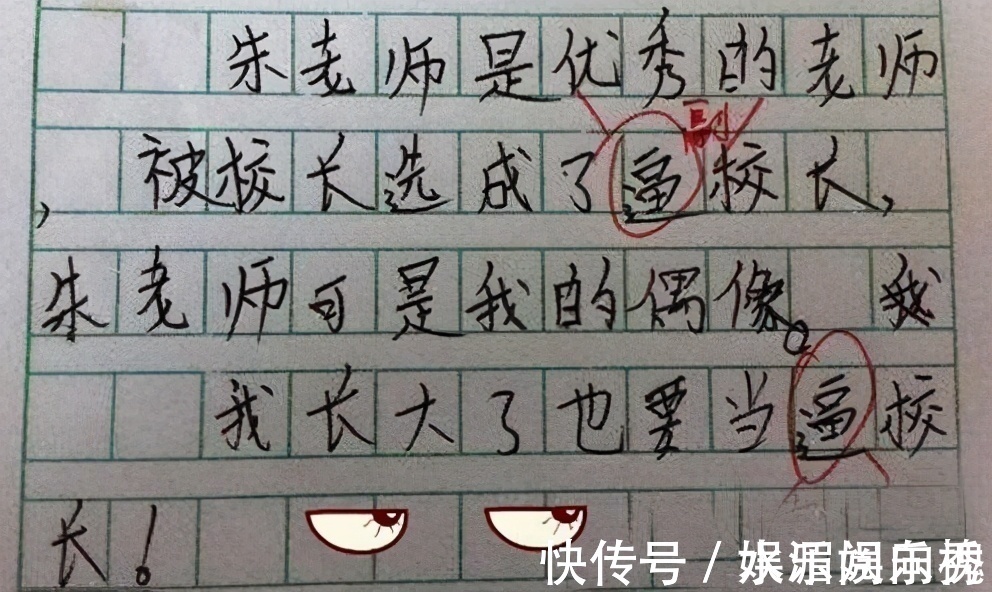 朱老师是优秀的老师
，被校长选成了逼校长，
朱老师可是我的偶像。我
我长大了也要当逼校
长！
快传号／